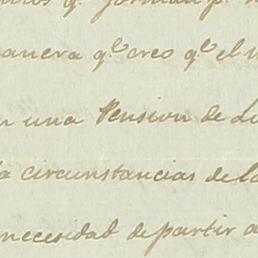 q.e forman p.
manera q.e creo q.e el
una Pension de
la circunstancias de la
necesidad de partir a